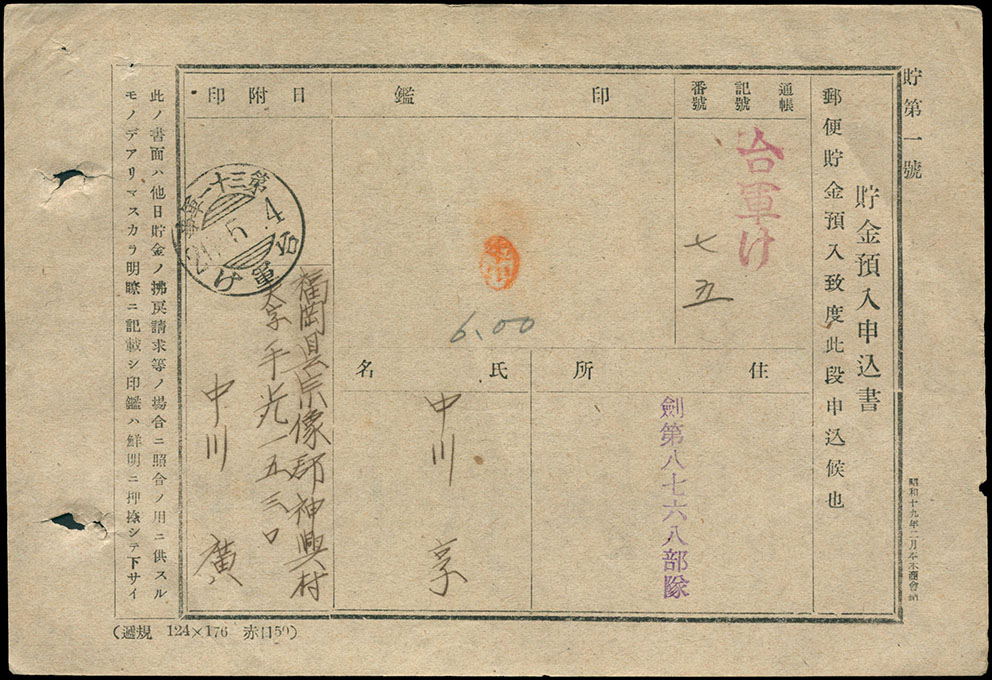 貯第一號
貯金預入申込書
郵便貯金預入致度此段申込候也
昭和十九年二月
通帳
記號
番號
台軍け
七五
印鑑
6.00
日附印
第三十一軍
5.4
台軍け
住所
劍第八七六八部隊
氏名
中川 享
福岡県宗像郡神興村
大字手光一五三〇
中川 廣
此ノ書面ハ他日貯金ノ拂戾請求等ノ場合ニ照合ノ用ニ供スル
モノデアリマスカラ明瞭ニ記載シ印鑑ハ鮮明ニ押捺シテ下サイ
(遞規 124×176 赤口50)